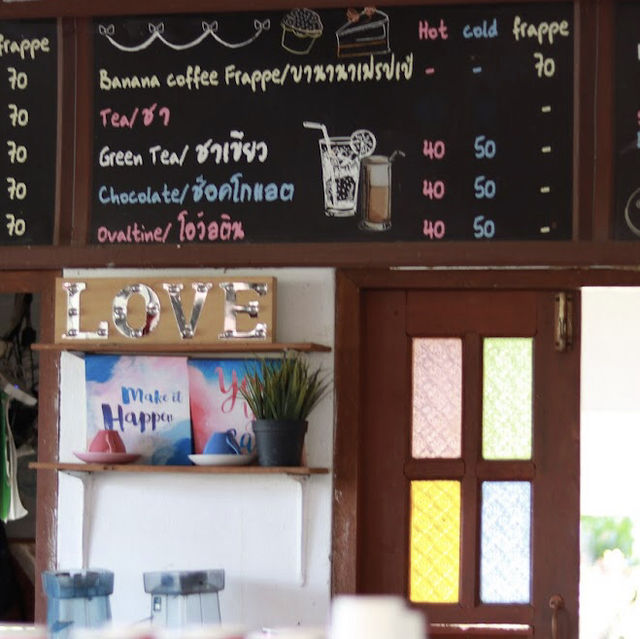 frappe
70
70
70
70
70
Hot cold frappe
Banana coffee Frappe/บานานาเฟรปเป้ - - 70
Tea/ชา -
Green Tea/ ชาเขียว 40 50 -
Chocolate/ช็อคโกแลต 40 50 -
Ovaltine/ โอวัลติน 40 50 -
LOVE
Make it
Happen